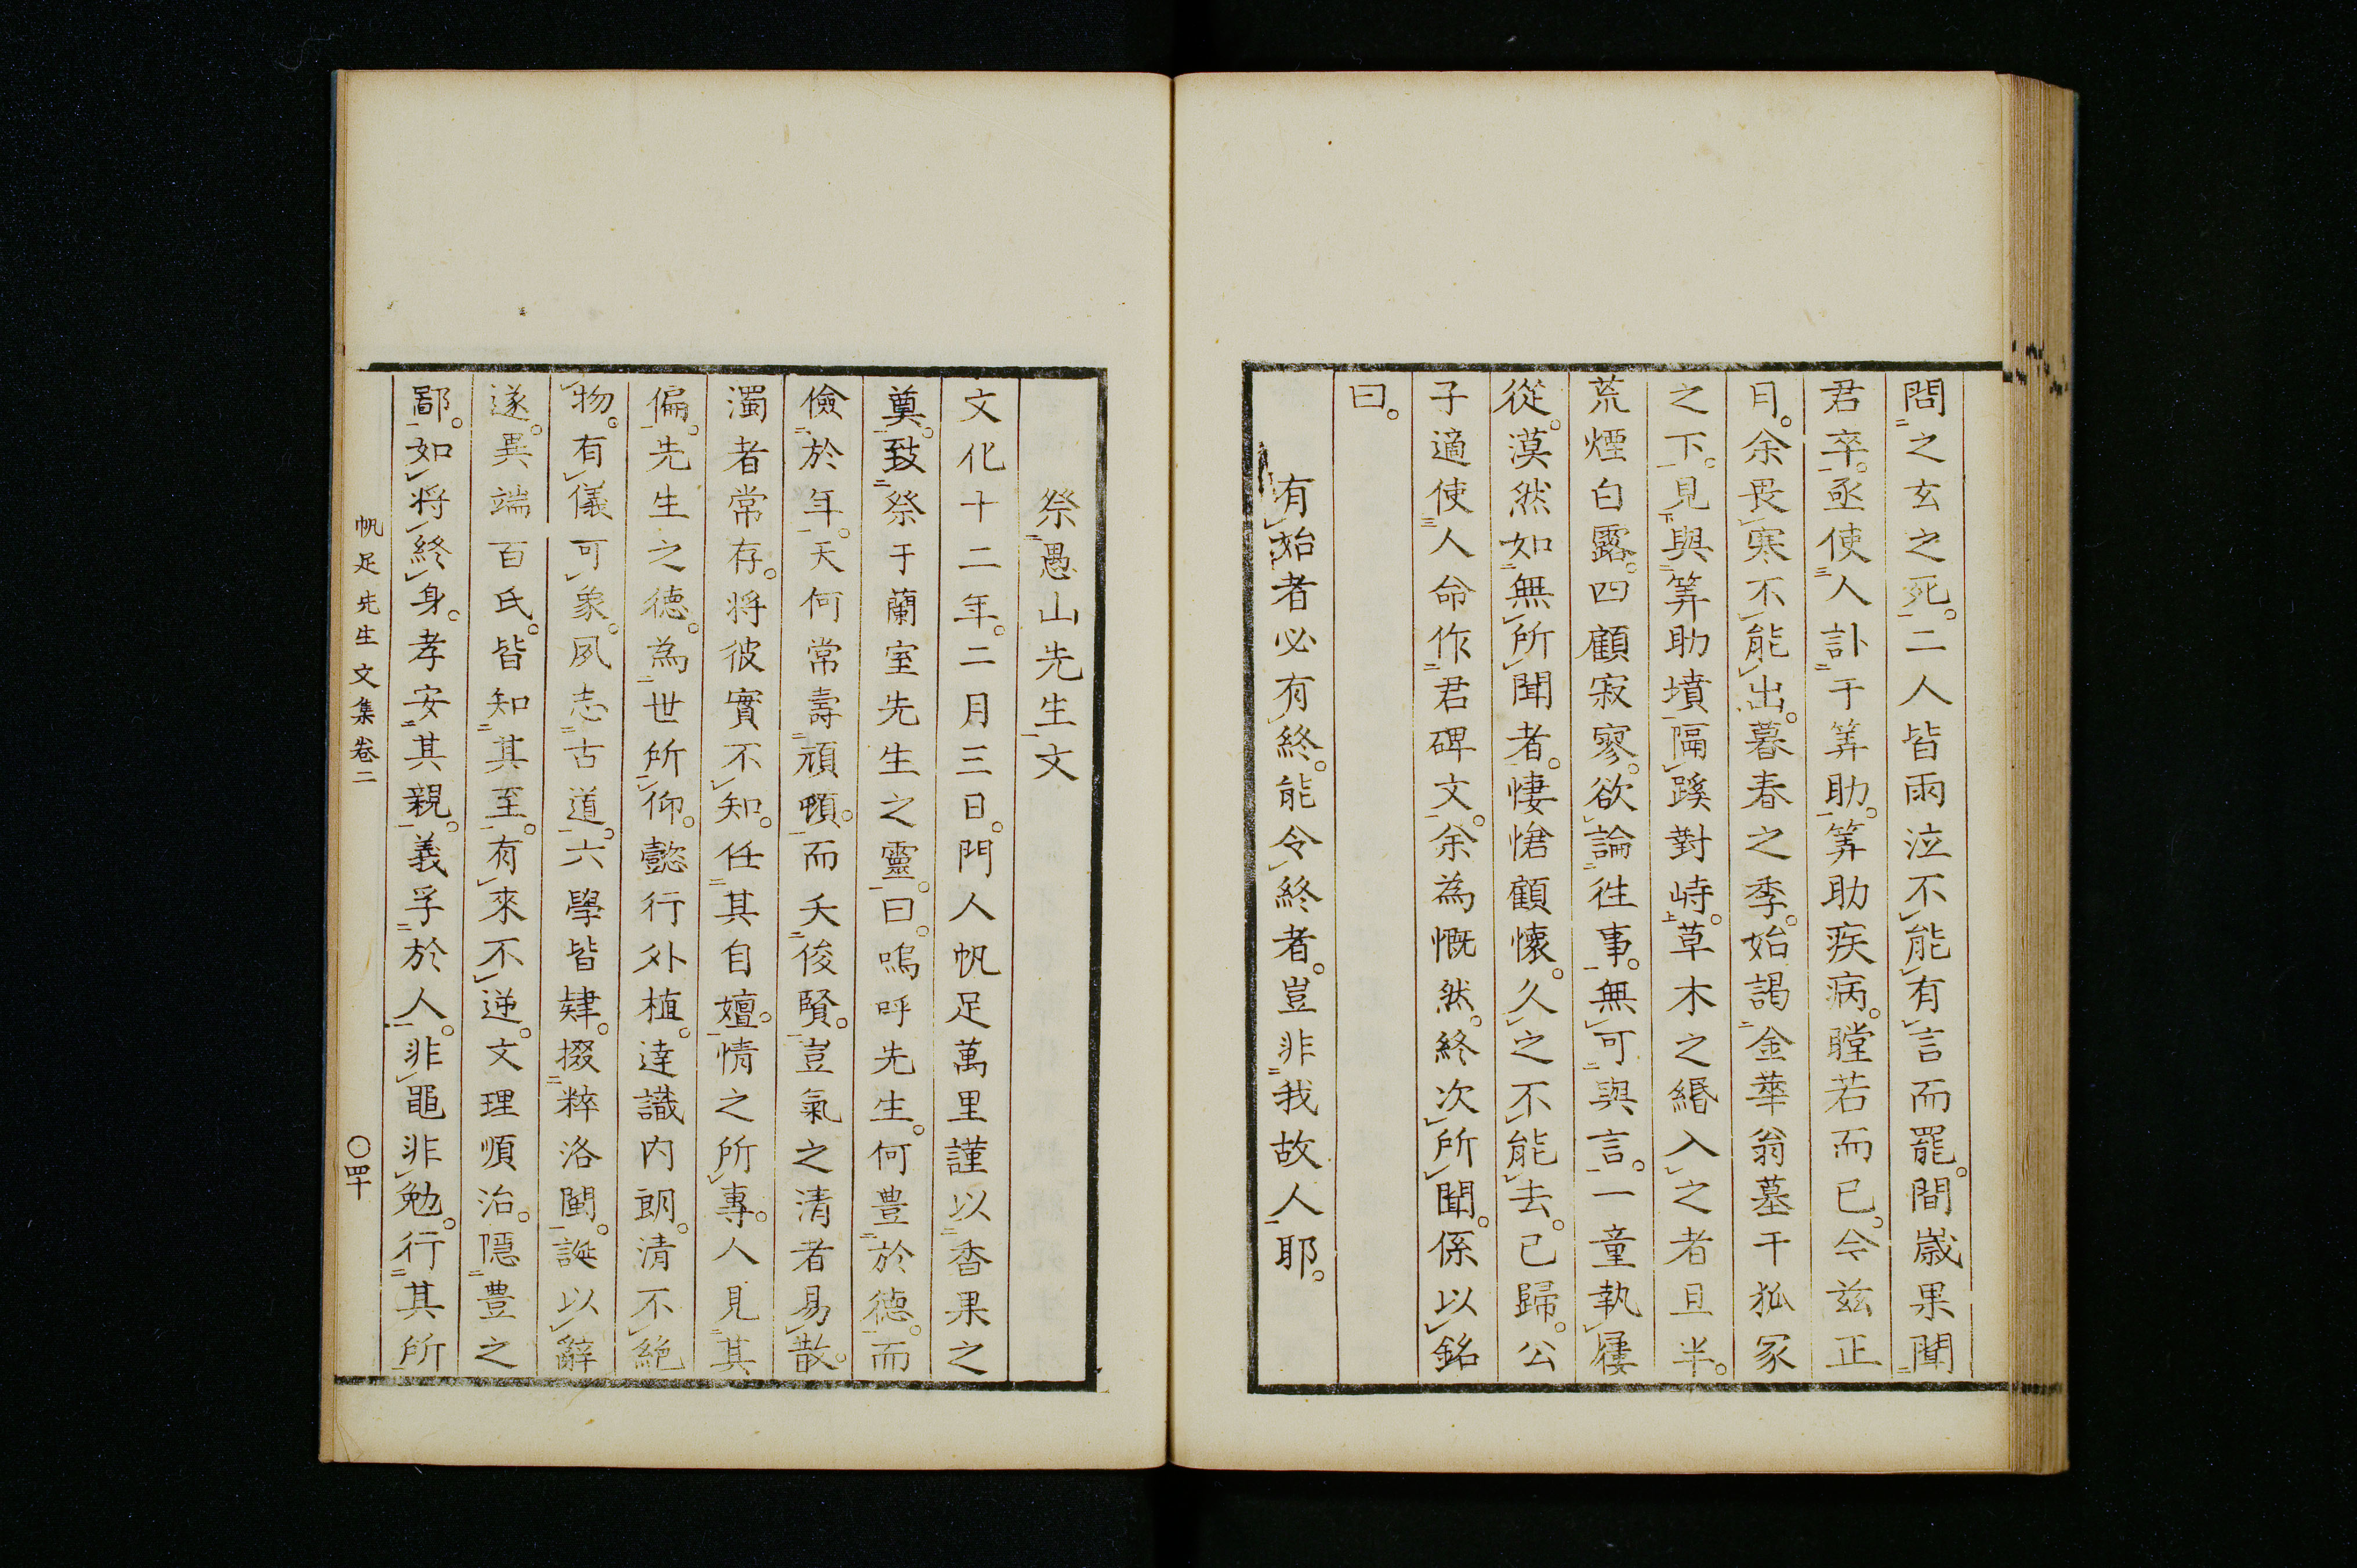 問之玄之死。二人皆兩泣不能有言而罷。間歳果聞
君卒。亟使人訃于筭助。筭助疾病。瞠若而已。今玆正
月。余畏寒不能出。暮春之季。始謁金華翁墓于狐冢
之下。見與筭助墳隔蹊對峙。草木之緡入之者且半。
荒煙白露。四顧寂寥。欲論徃事。無可與言。一童執屨
從。漠然如無所聞者。悽愴顧懷。久之不能去。已歸。公
子適使人命作君碑文。余為慨然。終次所聞。係以銘
曰。
有始者必有終。能令終者。豈非我故人耶。
祭愚山先生文
文化十二年。二月三日。門人帆足萬里謹以香果之
奠。致祭于蘭室先生之靈。曰。嗚呼先生。何豊於德。而
儉於年。天何常壽頑嚚。而夭俊賢。豈氣之清者易散。
濁者常存。將彼實不知。任其自嬗。情之所專。人見其
偏。先生之德。為世所仰。懿行外植。達識内朗。清不絶
物。有儀可象。夙志古道。六學皆肄。掇粹洛閩。誕以辭
遂。異端百氏。皆知其至。有來不逆。文理順治。隱豊之
鄙。如將終身。孝安其親。義孚於人。非黽非勉。行其所
帆足先生文集卷二
〇四十